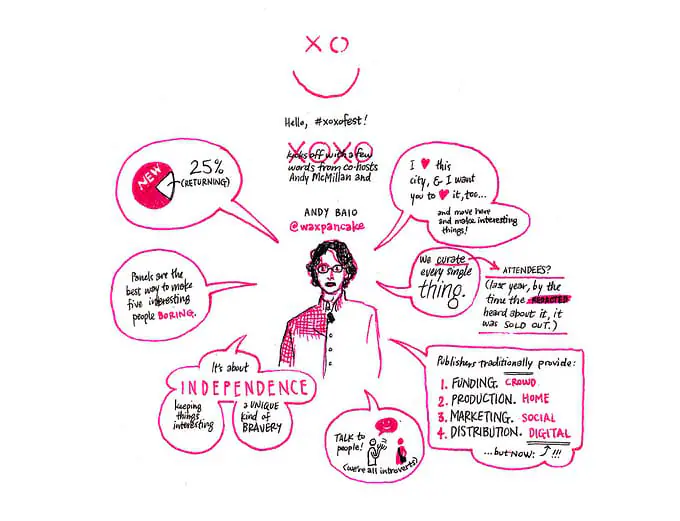 XO
Hello, #xoxofest!
XOXO
kicks off with a few
words from co-hosts
Andy McMillan and
ANDY BAIO
@waxpancake
NEW
25%
(RETURNING)
I ♥ this
city, & I want
you to ♥ it, too...
and move here
and make interesting
things!
Panels are the
best way to make
five interesting
people BORING.
We curate
every single
thing.
ATTENDEES?
(last year, by the
time the REDACTED
heard about it, it
was SOLD OUT.)
It's about
INDEPENDENCE
keeping
things
interesting
a UNIQUE
kind of
BRAVERY
TALK to
people!
(we're all introverts)
Publishers traditionally provide:
1. FUNDING. CROWD
2. PRODUCTION. HOME
3. MARKETING. SOCIAL
4. DISTRIBUTION. DIGITAL
...but NOW: !!!